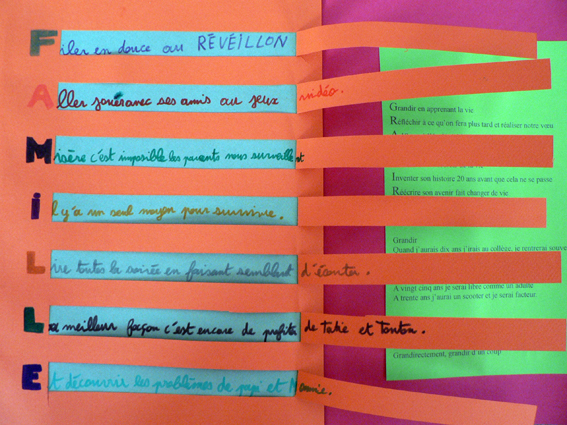 Filer en douce au RÉVEILLON
Aller jouer avec ses amis au jeux vidéo.
Misère c'est imposible les parents nous surveillent
Il y'a un seul moyen pour survivre.
Lire toutes la soirée en faisant semblant d'écouter.
La meilleur façon c'est encore de profiter de Tatie et Tonton.
Et découvrir les problèmes de papi et Mamie.
Grandir en apprenant la vie
Réfléchir à ce qu'on fera plus tard et réaliser notre vœu
Inventer son histoire 20 ans avant que cela ne se passe
Réécrire son avenir fait changer de vie
Grandir
Quand j'aurais dix ans j'irais au collège, je rentrerais
A vingt cinq ans je serai libre comme un adulte
A trente ans j'aurai un scooter et je serai facteur.
Grandirectement, grandir d'un coup